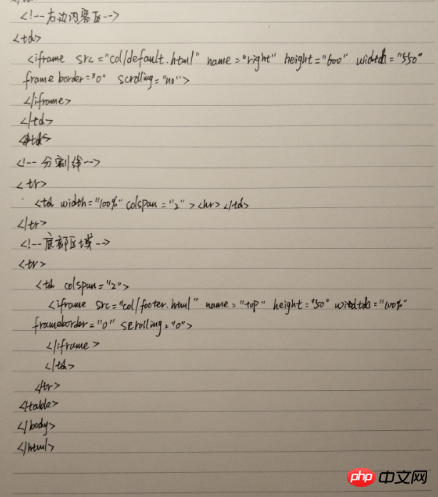 <!--右边内容区-->
<td>
<iframe src="col/default.html" name="right" height="600" widtdh="550"
frameborder="0" scrolling="no">
</iframe>
</td>
<!--分割线-->
<tr>
<td width="100%" colspan="2"><hr></td>
</tr>
<!--底部区域-->
<tr>
<td colspan="2">
<iframe src="col/footer.html" name="top" height="50"
frameborder="0" scrolling="0">
</iframe>
</td>
</tr>
</table>
</body>
</html>
php 中文网